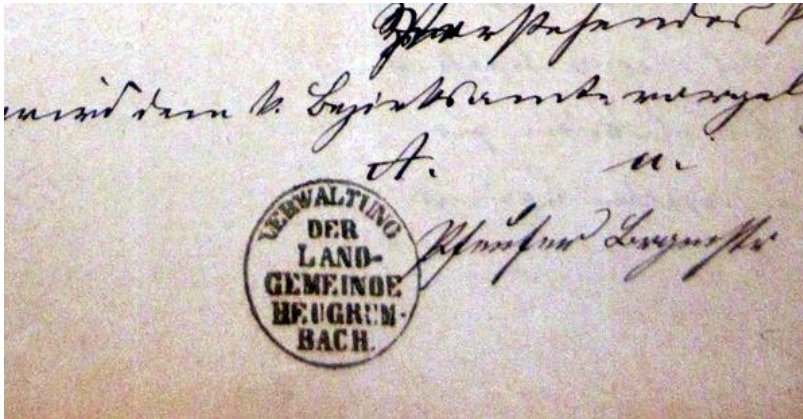 Vorstehendes
wird dem k. Bezirksamte vorgel
A. u.
VERWALTUNG
DER
LAND-
GEMEINDE
HEUGRUM-
BACH.
Pfeufer Brgmstr